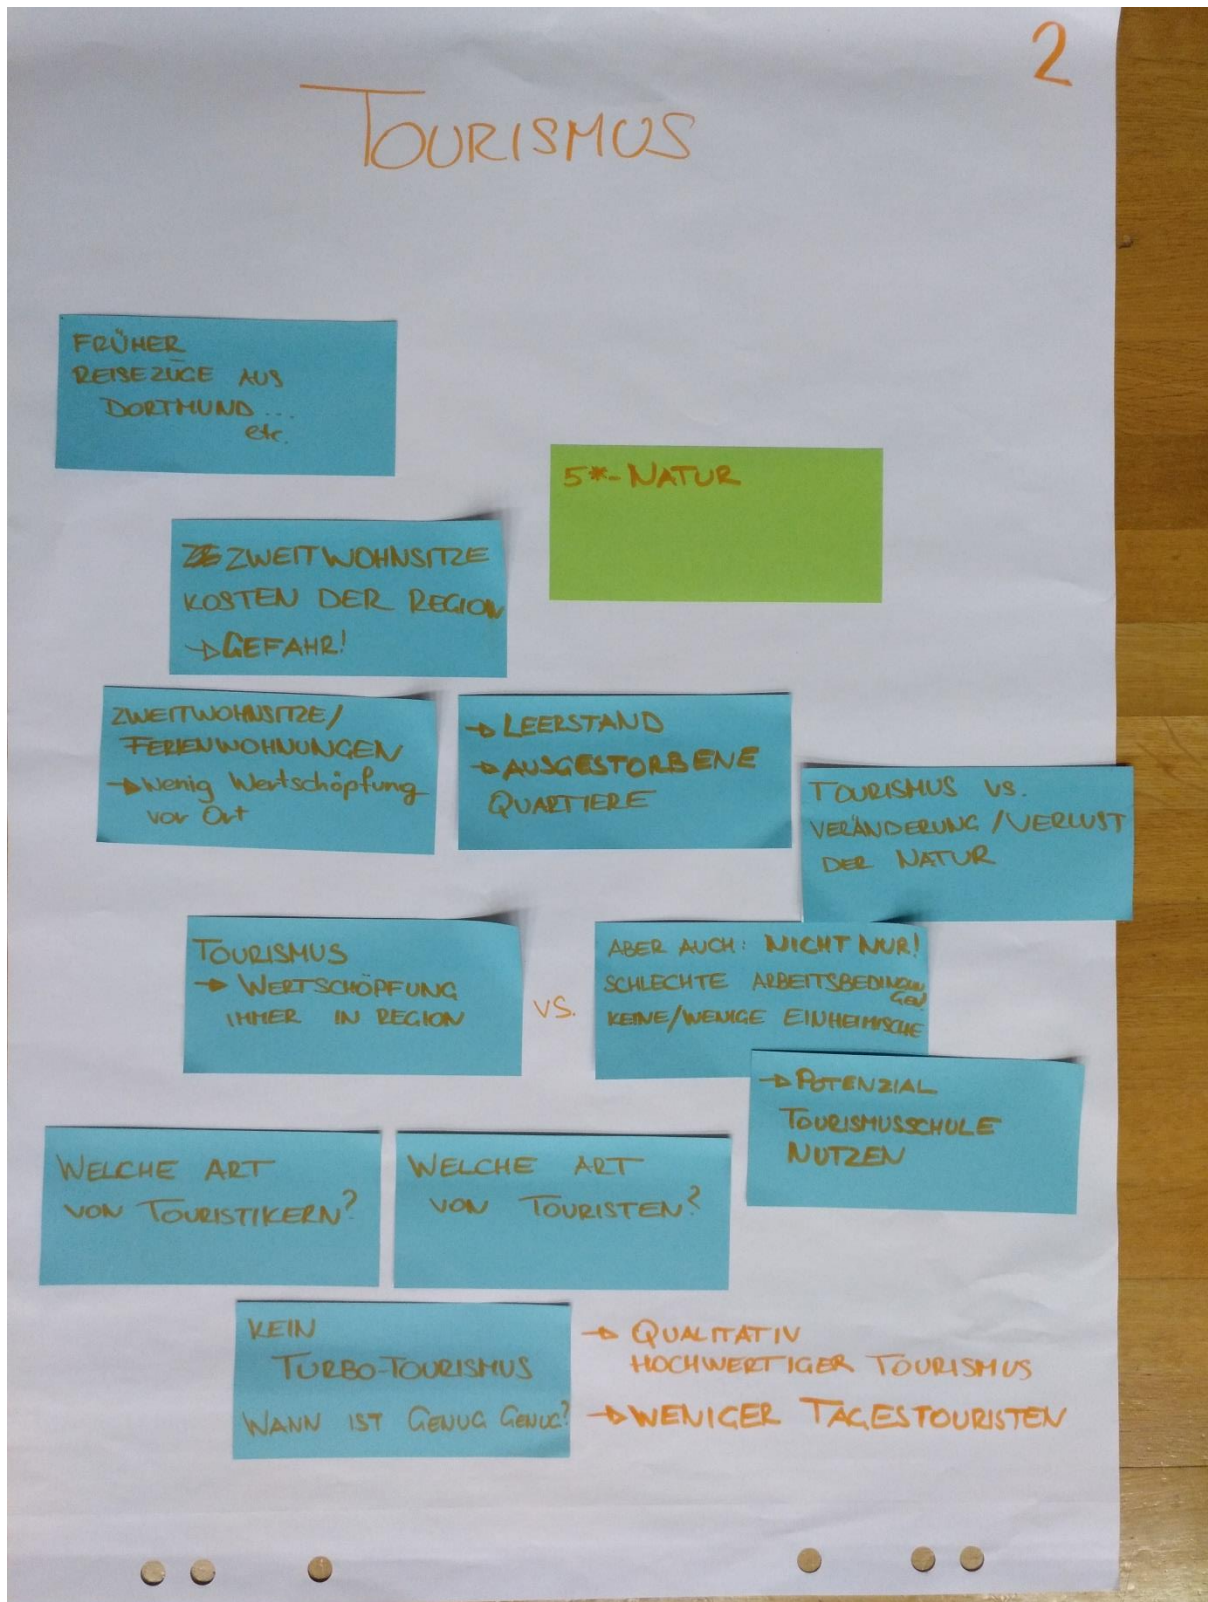 2
TOURISMUS
FRÜHER
REISEZÜGE AUS
DORTMUND...
etc.
5*-NATUR
ZWEITWOHNSITZE
KOSTEN DER REGION
→ GEFAHR!
ZWEITWOHNSITZE/
FERIENWOHNUNGEN
→ Wenig Wertschöpfung
vor Ort
→ LEERSTAND
→ AUSGESTORBENE
QUARTIERE
TOURISMUS VS.
VERÄNDERUNG/VERLUST
DER NATUR
TOURISMUS
→ WERTSCHÖPFUNG
IMMER IN REGION
VS.
ABER AUCH: NICHT NUR!
SCHLECHTE ARBEITSBEDINGUN
GEN
KEINE/WENIGE EINHEIMISCHE
→ POTENZIAL
TOURISMUSSCHULE
NUTZEN
WELCHE ART
VON TOURISTIKERN?
WELCHE ART
VON TOURISTEN?
KEIN
TURBO-TOURISMUS
WANN IST GENUG GENUG?
→ QUALITATIV
HOCHWERTIGER TOURISMUS
→ WENIGER TAGESTOURISTEN